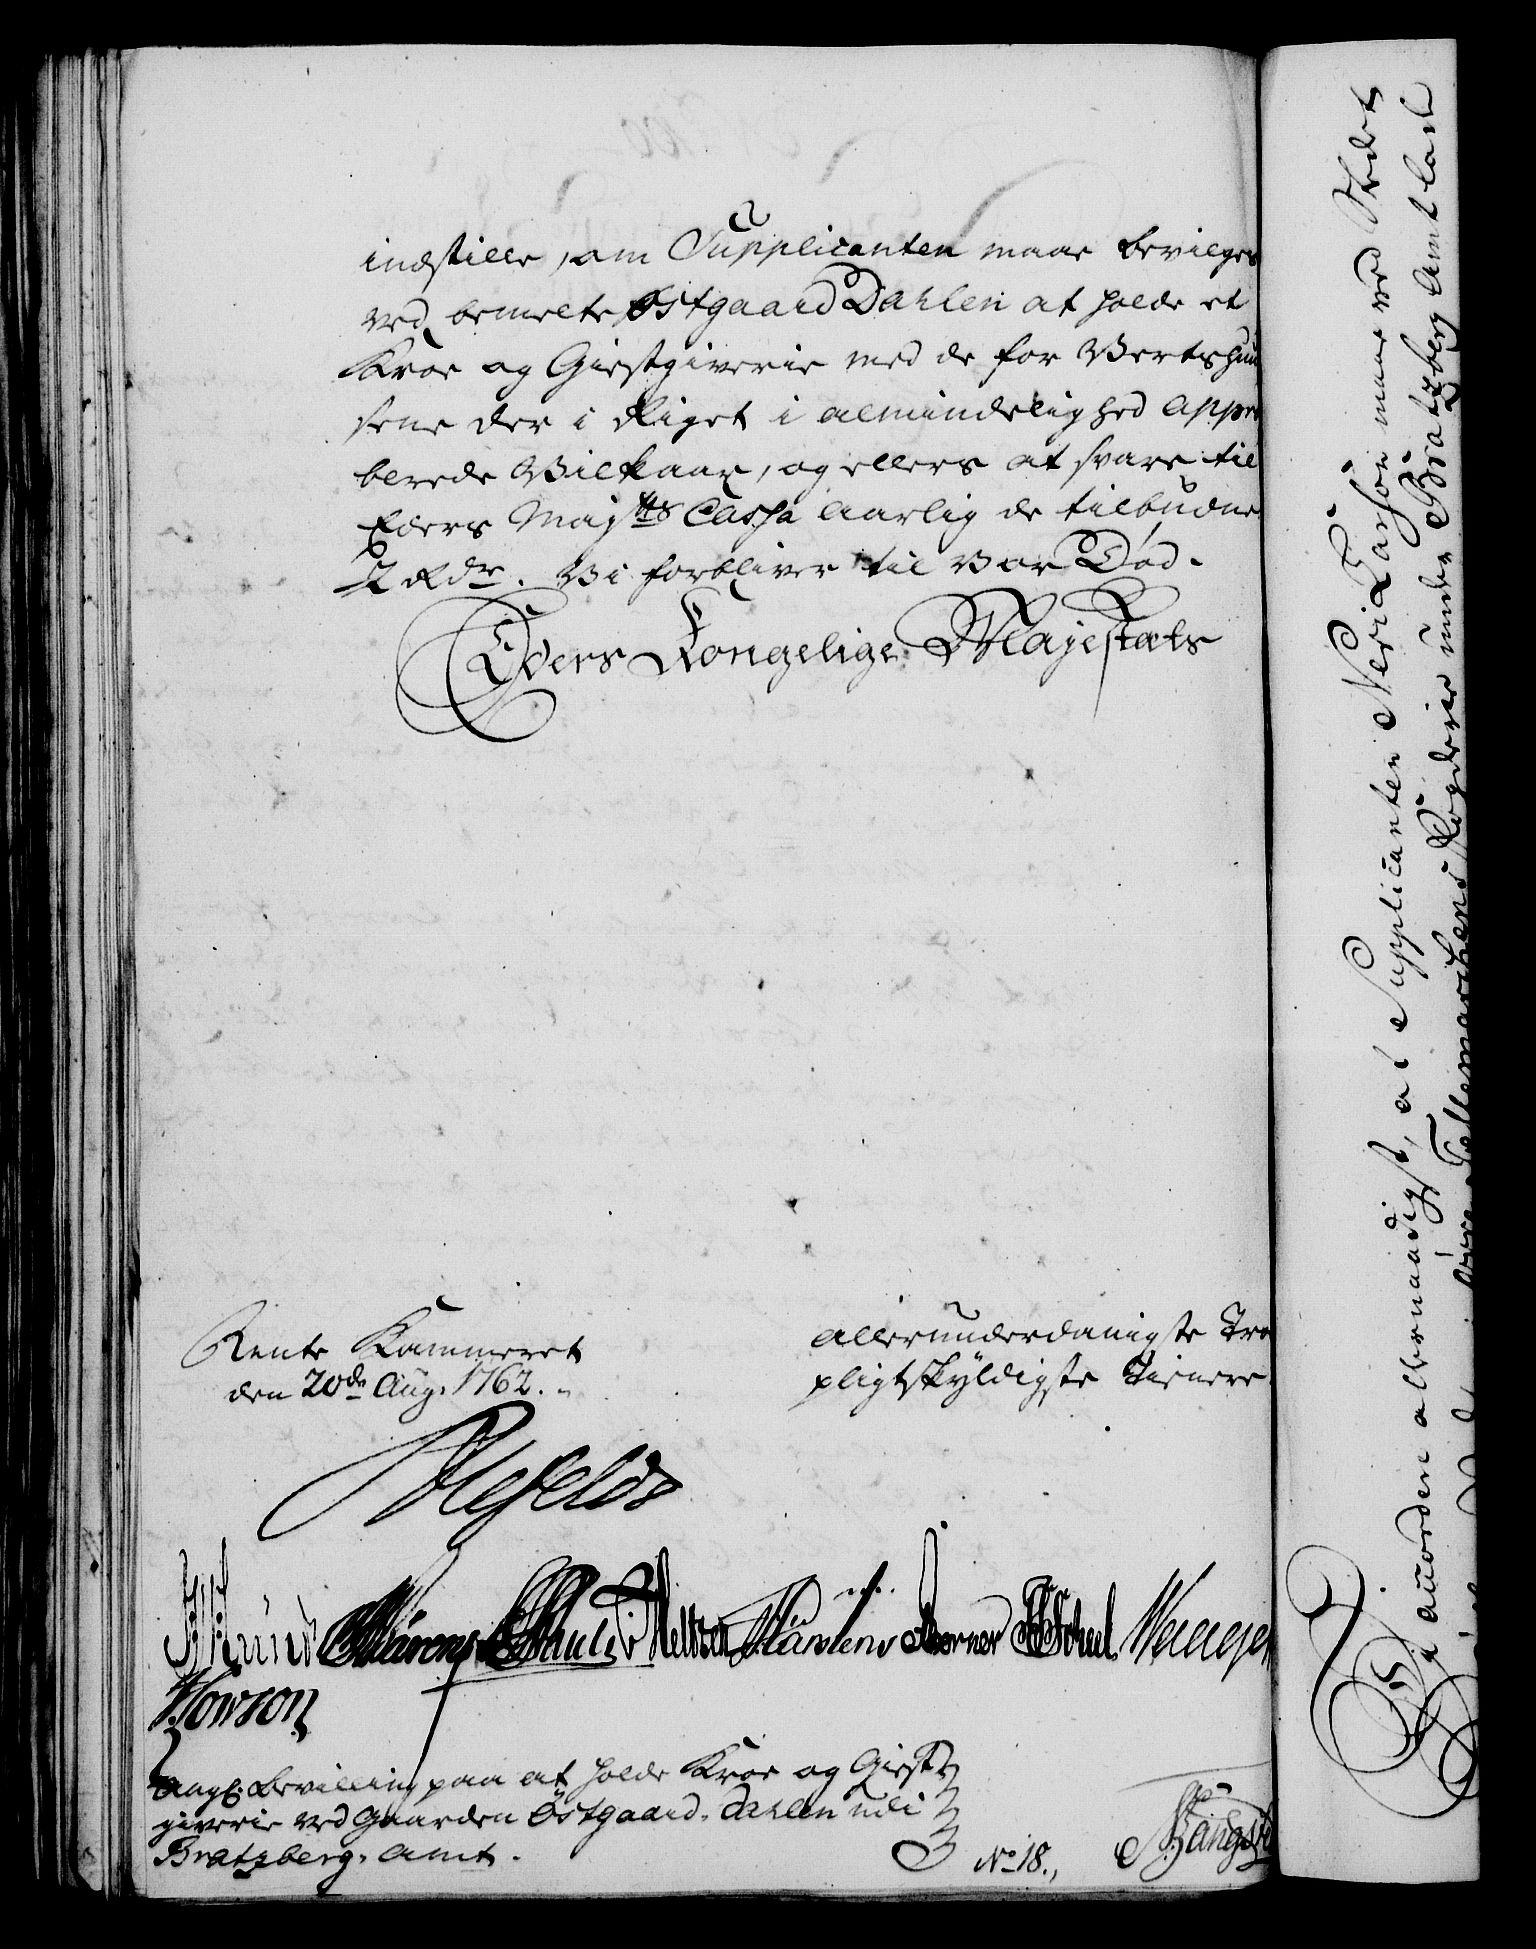 indstille, om Supplicanten maae bevilges
ved bemelte Østgaard Dahlen at holde et
Kroe og Giestgiverie med de for Vertshuu
sene der i Riget i almindelighed appro
berede Vilkaar, og ellers at svare til
Eders Maj:ts Cassa aarlig de tilbudne
2 Rdr. Vi forbliver til vor Død.
Eders Kongelige Majestæts
Rente Kammeret
den 20de Aug. 1762.
allerunderdanigste Tro
pligtskyldigste Tienere
Ahlefeldt
Hund
Meltzer
Kärstens
Horner
Scheel
Howson
ang: Bevilling paa at holde Kroe og Giest
giverie ved Gaarden Østgaard-Dahlen udi
Bratzberg-Amt.
No 18.,
Bangst
Vi
at Supplicanten Neri Larsøn maae ved Stedet
Tellemarchens Fogderie under Bratzberg Amt lade